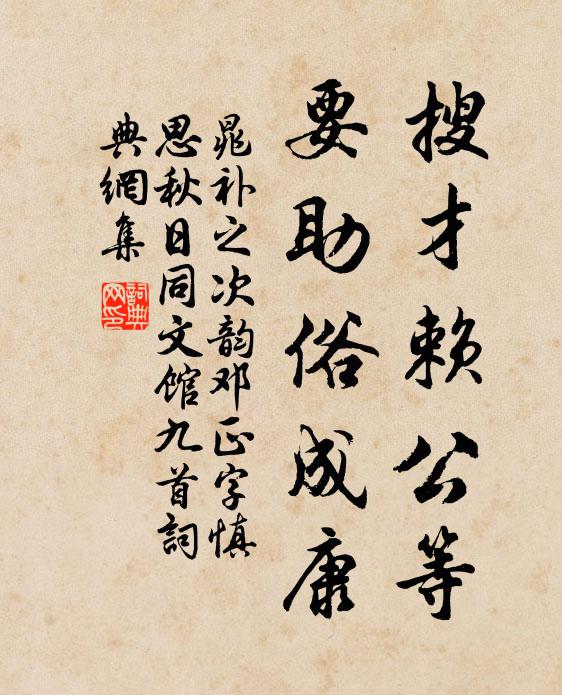 搜才赖公等
要助俗成康
晁补之次韵邓正字慎
思秋日同文馆九首詞
典網集
詞典
网印